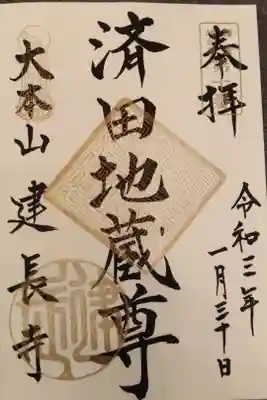 奉拝
令和三年
一月三十日
済田地蔵尊
大本山 建長寺